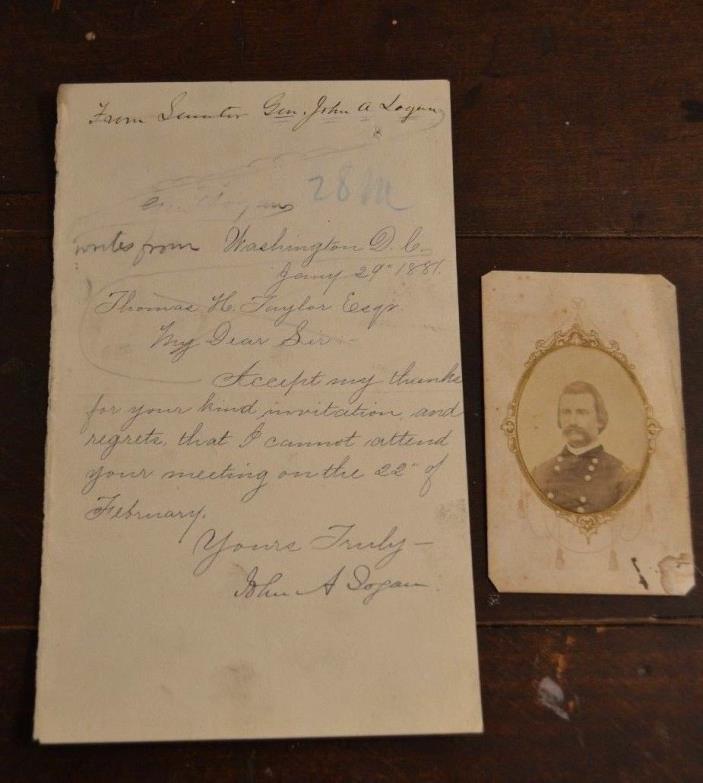 From Senator Gen. John A Logan
28 M
writes from Washington D. C.
Jany 29" 1881.
Thomas H. Taylor Esqr.
My Dear Sir -
Accept my thanks
for your kind invitation, and
regrets, that I cannot attend
your meeting on the 22" of
February.
Yours Truly -
John A Logan